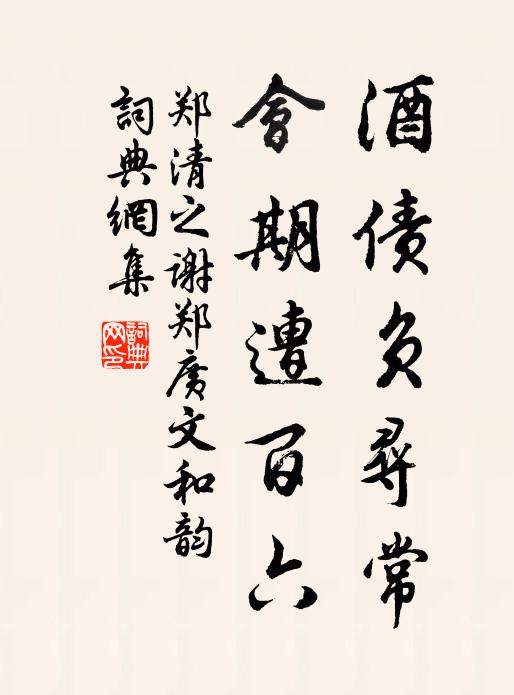 酒债负尋常
會期遭百六
郑清之谢郑广文和韵
詞典網集
詞典网印